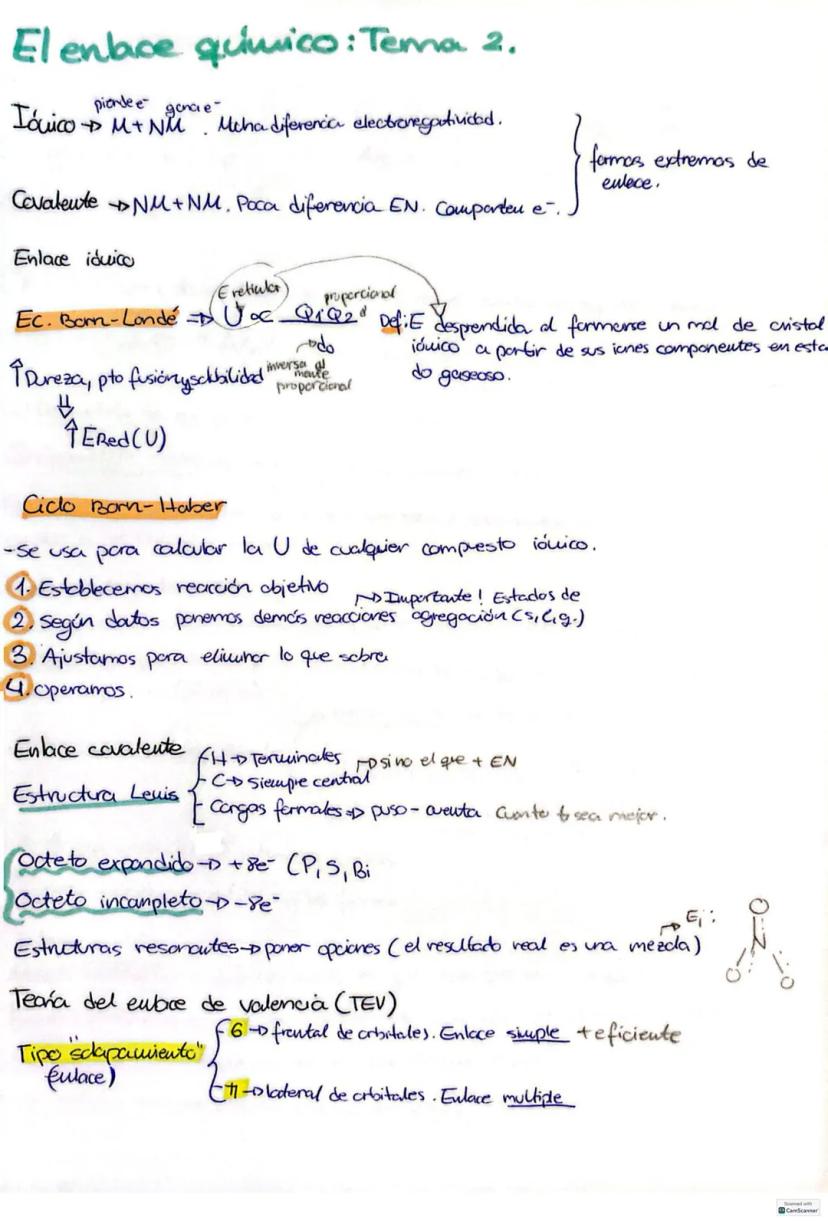 El enlace químico: Tema 2.
pierde e⁻ gana e⁻
Iónico → M + NM. Mcha diferencia electronegatividad.
formas extremos de
enlace.
Covalente → NM + NM. Poca diferencia EN. Comparten e⁻.
Enlace iónico
E reticular
proporcional
Ec. Born-Landé ⇒ U ∝ Q1Q2 Def: E desprendida al formarse un mol de cristal
→ do iónico a partir de sus iones componentes en esta
↑ Dureza, pto fusión y solubilidad inversa al mente proporcional do gaseoso.
⇓
↑ ERed (U)
Ciclo Born-Haber
- Se usa para calcular la U de cualquier compuesto iónico.
1. Establecemos reacción objetivo → Importante! Estados de
2. Según datos ponemos demás reacciones agregación (s, l, g.)
3. Ajustamos para eliminar lo que sobre
4. operamos.
Enlace covalente
H → Terminales → sino el que + EN
C → Siempre central
Estructura Lewis
Cargas formales ⇒ puso - cuenta Cuanto sea mejor.
Octeto expandido → +8e⁻ (P, S, Bi
Octeto incompleto → -8e⁻
Ej:
Estructuras resonantes → poner opciones (el resultado real es una mezcla)
O
N
O O
Teoría del enlace de valencia (TEV)
Tipo "solapamiento"
(enlace)
σ → frontal de orbitales. Enlace simple + eficiente
π → lateral de orbitales. Enlace multiple
Scanned with
CamScanner